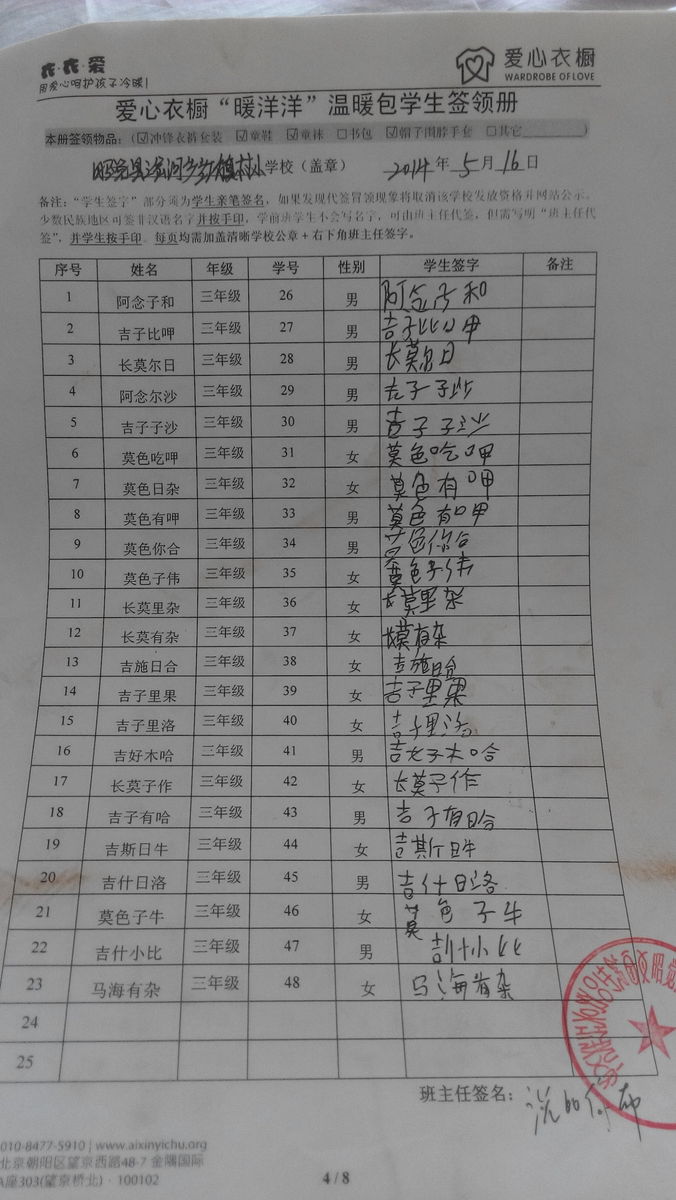 衣·衣·爱
用爱心呵护孩子冷暖!
爱心衣橱
WARDROBE OF LOVE
爱心衣橱“暖洋洋”温暖包学生签领册
本册签领物品：(☑冲锋衣裤套装 ☑童鞋 ☑童袜 □书包 ☑帽子围脖手套 □其它
学校（盖章） 2014年5月16日
备注：“学生签字”部分须为学生亲笔签名，如果发现代签冒领现象将取消该学校发放资格并网站公示。
少数民族地区可签非汉语名字并按手印，学前班学生不会写名字，可由班主任代签，但需写明“班主任代
签”，并学生按手印。每页均需加盖清晰学校公章+右下角班主任签字。
序号 姓名 年级 学号 性别 学生签字 备注
1 阿念子和 三年级 26 男 阿念子和
2 吉子比呷 三年级 27 男 吉子比呷
3 长莫尔日 三年级 28 男 长莫尔日
4 阿念尔沙 三年级 29 男 吉子子沙
5 吉子子沙 三年级 30 男 吉子子沙
6 莫色吃呷 三年级 31 女 莫色吃呷
7 莫色日杂 三年级 32 女 莫色有呷
8 莫色有呷 三年级 33 男 莫色有呷
9 莫色你合 三年级 34 男 莫色你合
10 莫色子伟 三年级 35 女 莫色子伟
11 长莫里杂 三年级 36 女 长莫里杂
12 长莫有杂 三年级 37 女 长莫有杂
13 吉施日合 三年级 38 女 吉施日哈
14 吉子里果 三年级 39 女 吉子里果
15 吉子里洛 三年级 40 女 吉子里洛
16 吉好木哈 三年级 41 男 吉好木哈
17 长莫子作 三年级 42 女 长莫子作
18 吉子有哈 三年级 43 男 吉子有哈
19 吉斯日牛 三年级 44 女 吉斯日牛
20 吉什日洛 三年级 45 男 吉什日洛
21 莫色子牛 三年级 46 女 莫色子牛
22 吉什小比 三年级 47 男 吉什小比
23 马海有杂 三年级 48 女 马海有杂
24
25
班主任签名：
010-8477-5910 | www.aixinyichu.org
北京朝阳区望京西路48-7 金隅国际
A座303(望京桥北) · 100102
4 / 8